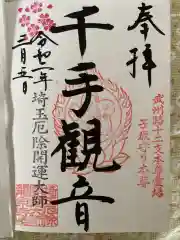 奉拝
武州路十二支本尊霊場
子歳守り本尊
千手観音
埼玉厄除開運大師
令和二年
三月五日